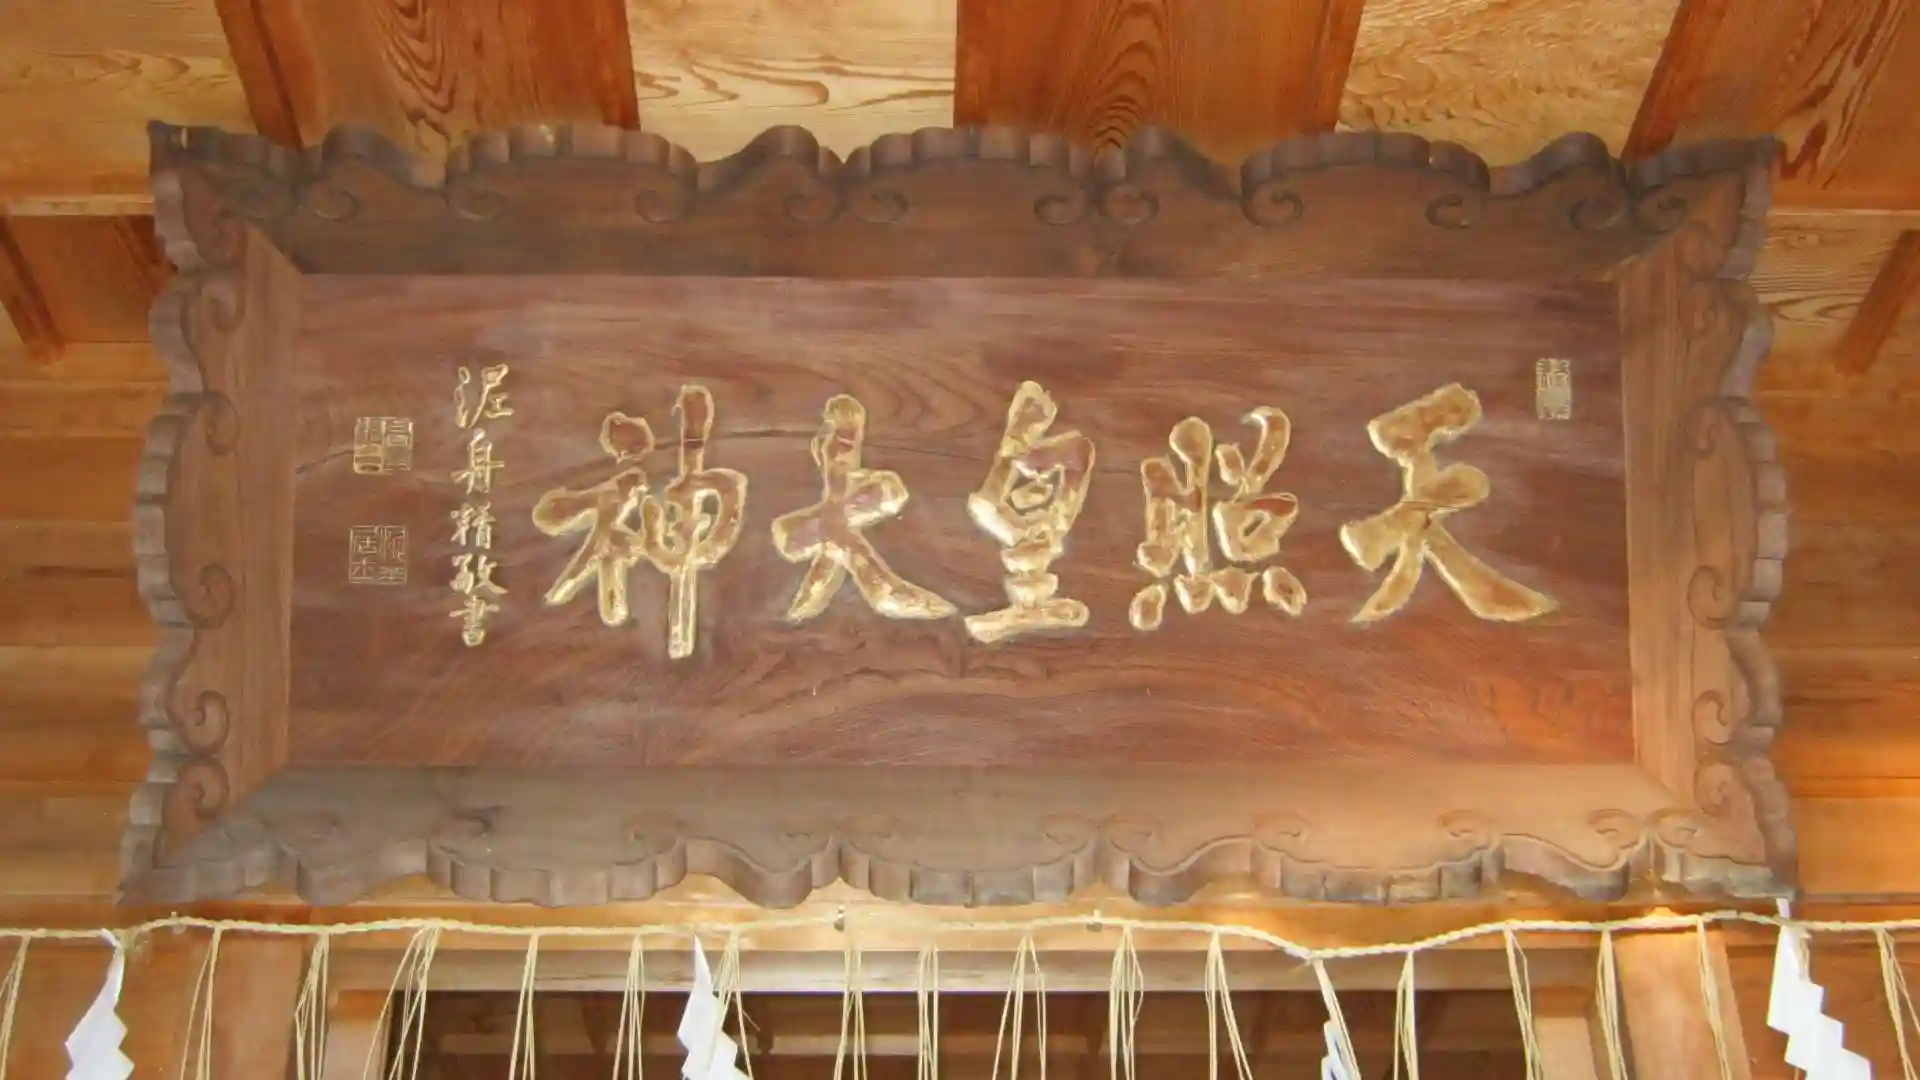 天照皇大神
泥舟精敬書